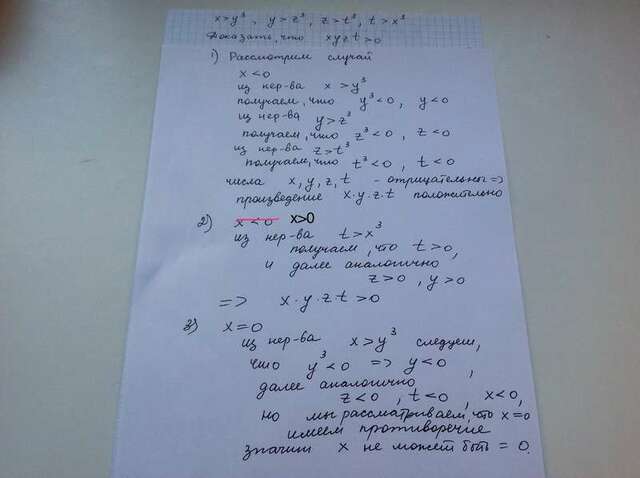 x>y³, y>z³, z>t³, t>x³
Доказать, что xyzt>0
1) Рассмотрим случай
x<0
из нер-ва x>y³
получаем, что y³<0, y<0
из нер-ва y>z³
получаем, что z³<0, z<0
из нер-ва z>t³
получаем, что t³<0, t<0
числа x, y, z, t - отрицательны =>
произведение x·y·z·t положительно
2) x<0 x>0
из нер-ва t>x³
получаем, что t>0,
и далее аналогично
z>0, y>0
=> x·y·z·t>0
3) x=0
из нер-ва x>y³ следует,
что y³<0 => y<0,
далее аналогично
z<0, t<0, x<0,
но мы рассматриваем, что x=0
имеем противоречие
значит x не может быть = 0.